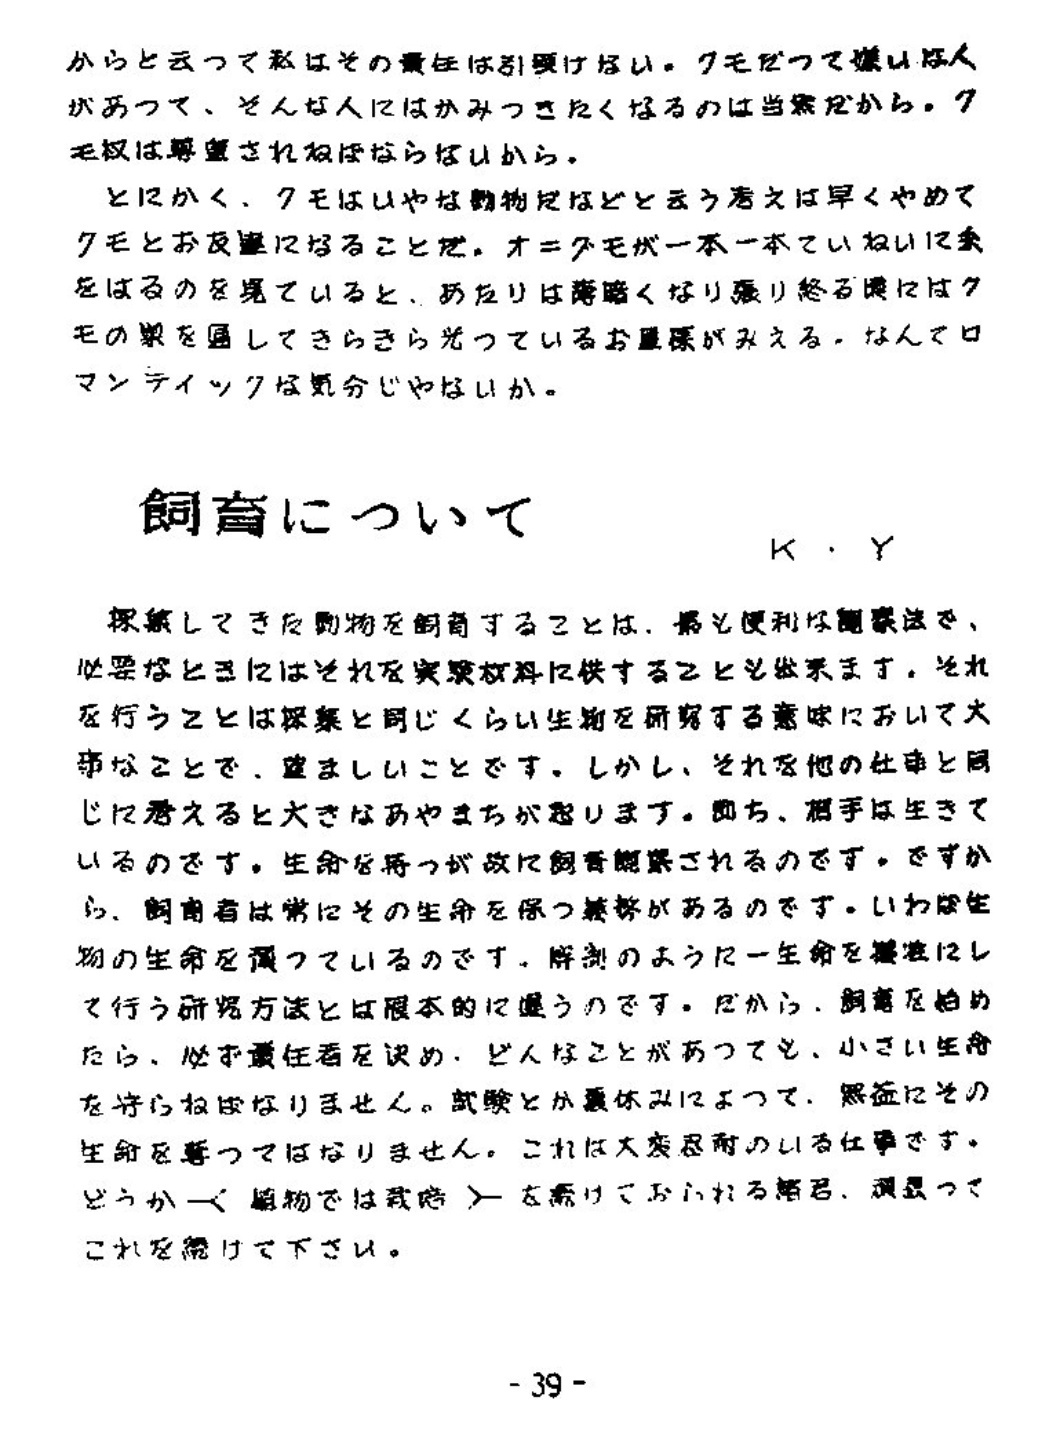 からと云って私はその責任は引受けない。クモだって嫌いな人
があつて、そんな人にはかみつきたくなるのは当然だから。ク
モ权は尊重されねばならないから。
とにかく、クモはいやな動物だなどと云う考えは早くやめて
クモとお友達になることだ。オニグモが一本一本ていねいに糸
をはるのを見ていると、あたりは薄暗くなり張り終る頃にはク
モの巣を通してきらきら光っているお星様がみえる。なんてロ
マンティックな気分じやないか。
飼育について
K・Y
採集してきた動物を飼育することは、最も便利な観察法で、
必要なときにはそれを実験材料に供することも出来ます。それ
を行うことは採集と同じくらい生物を研究する意味において大
事なことで、望ましいことです。しかし、それを他の仕事と同
じに考えると大きなあやまちが起ります。即ち、相手は生きて
いるのです。生命を持つが故に飼育観察されるのです。ですか
ら、飼育者は常にその生命を保つ義務があるのです。いわば生
物の生命を預っているのです。解剖のように一生命を犠牲にし
て行う研究方法とは根本的に違うのです。だから、飼育を始め
たら、必ず責任者を決め、どんなことがあっても、小さい生命
を守らねばなりません。試験とか夏休みによつて、無益にその
生命を奪ってはなりません。これは大変忍耐のいる仕事です。
どうか─〈 植物では栽培 〉─を続けておられる諸君、頑張って
これを続けて下さい。
- 39 -